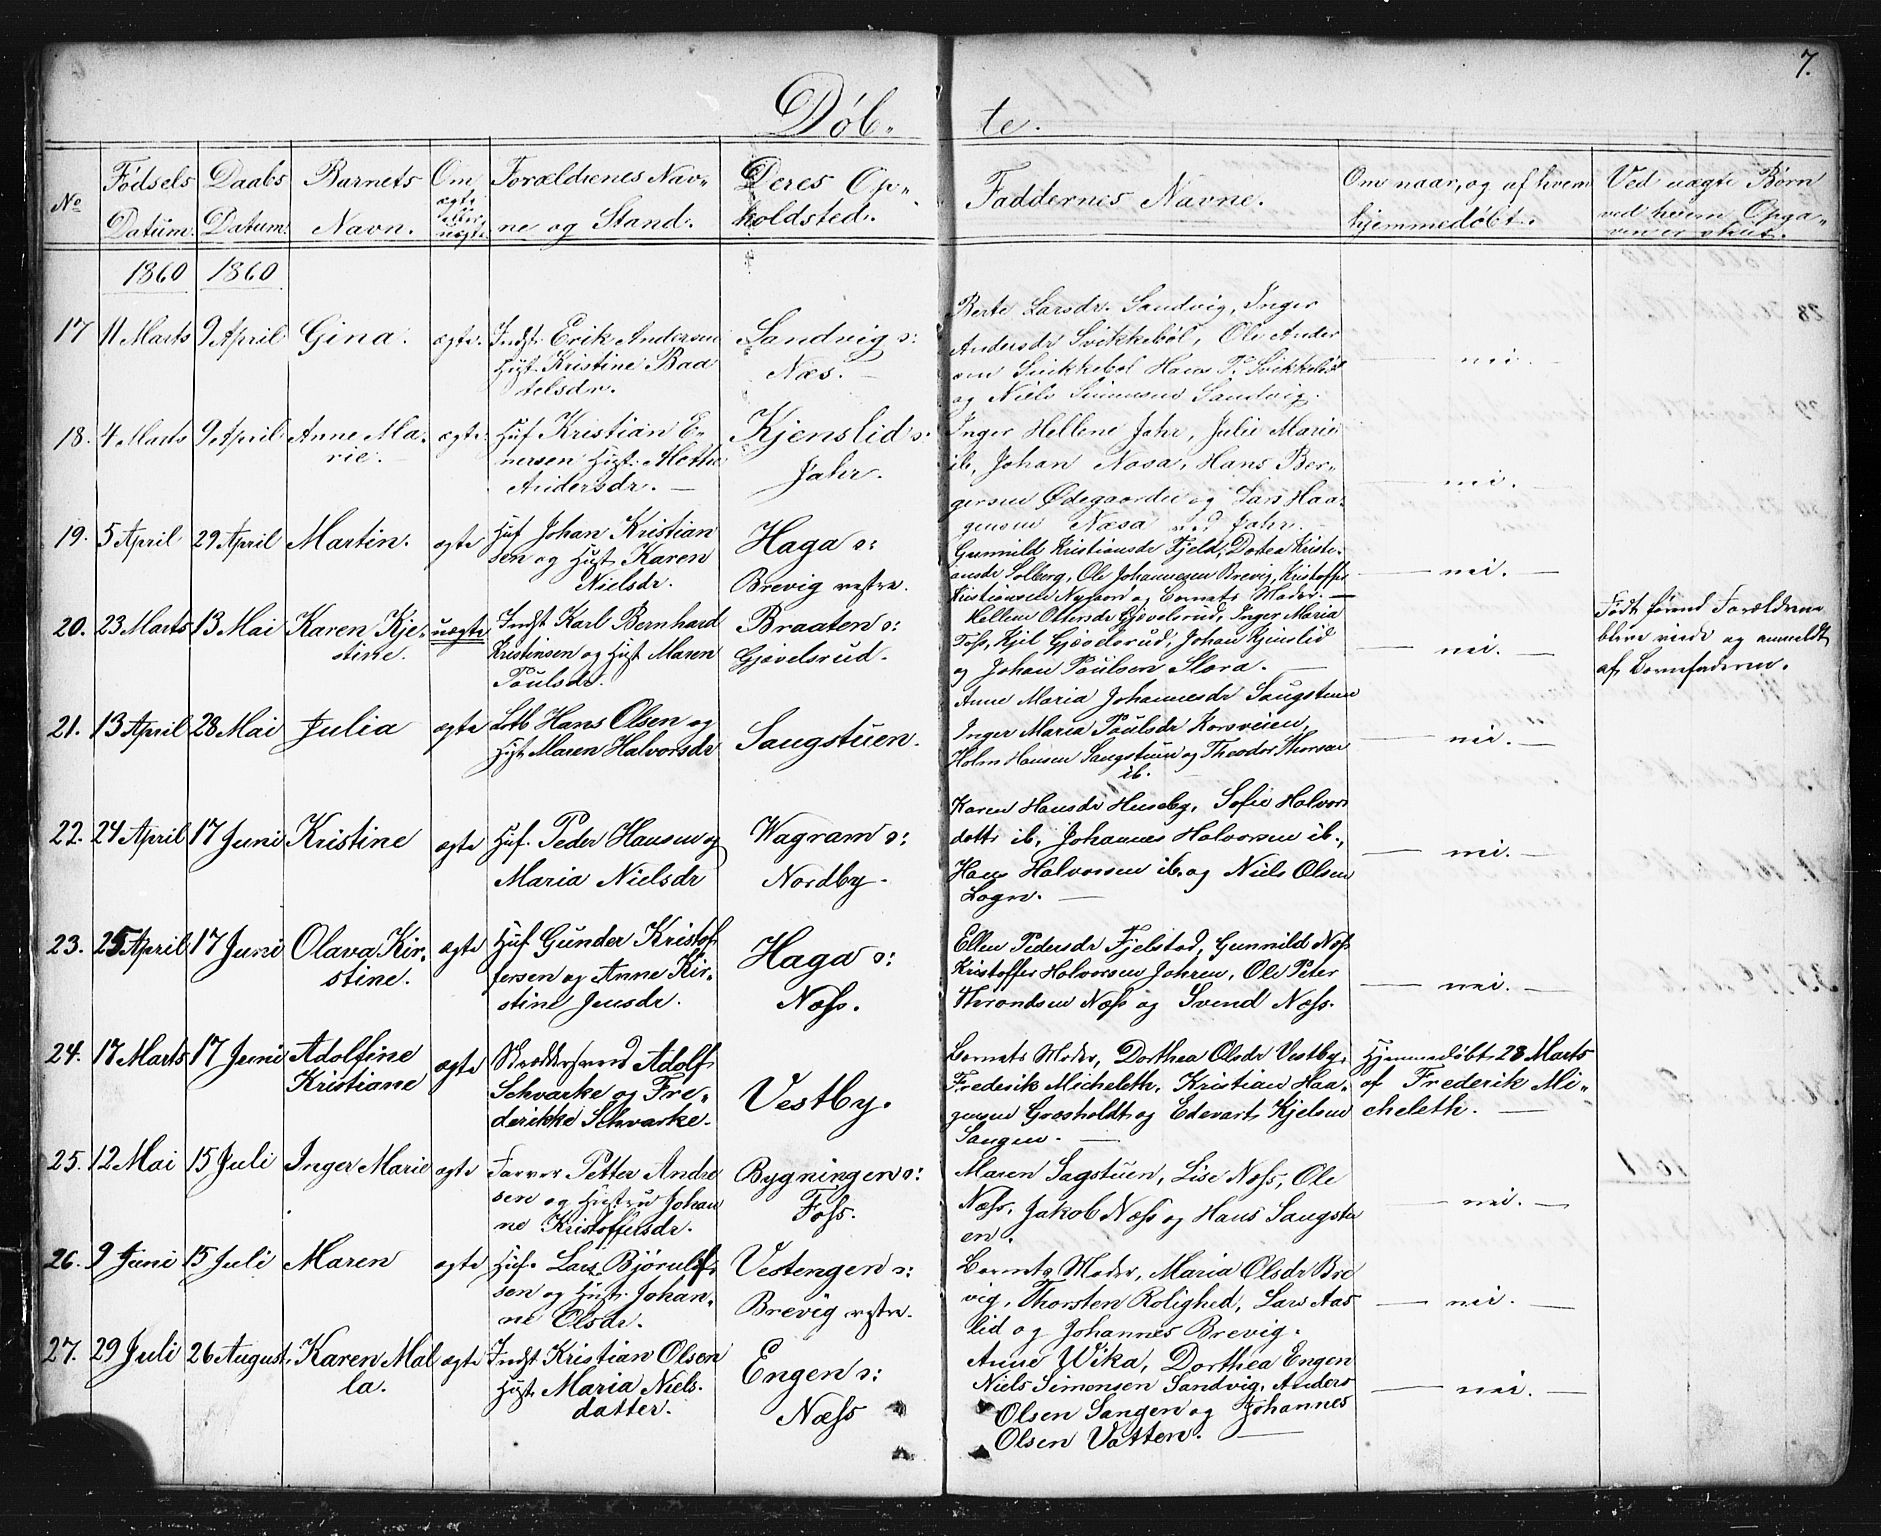 7.
Døb- te.
No
Fødsels Datum.
Daabs Datum.
Barnets Navn.
Om ægte eller uægte.
Forældrenes Navne og Stand.
Deres Opholdsted.
Faddernes Navne.
Om naar, og af hvem hjemmedøbt.
Ved uægte Børn ved hvem Opgaven er skeet.
1860 1860
17 11 Marts 9 April Gina. ægte.
Indst. Erik Andersen
Hust. Kristine Baa
telsdr.
Sandvig s:
Næs.
Berte Larsdr. Sandvig, Inger
Andersdr Svikkebøl, Ole Ander
sen Svikkebøl Hans P. Svikkebøl
og Niels Simensen Sandvig.
— nei. —
18. 4 Marts 9 April Anne Ma-
rie. —
ægte.
Huf. Kristian E-
nersen Hust. Mette
Andersdr. —
Kjenslid s:
Jahr.
Inger Hellene Jahr, Julie Marie
ib, Johan Nasa, Hans Ber-
gersen Ødegaarden og Lars Haa-
gensen Næsa ved Jahr.
— nei. —
19. 5 April 29 April Martin. ægte
Huf Johan Kristian
sen og Hust Karen
Nielsdr.
Haga s:
Brevig vestre.
Gunnild Kristiansdr Fjeld, Dortea Kristi-
ansdr Solberg, Ole Johannesen Brevig, Kristoffer
Kristiansen Nygaard og Barnets Moder. —
— nei. —
20. 23 Marts 13 Mai Karen Kje-
stine.
uægte
Indst Karl Bernhard
Kristensen og Hust Maren
Poulsdr.
Braaten s:
Gjøvelsrud.
Hellene Ottersdr Gjøvelsrud, Inger Maria
Foss, Kjel Gjøvelsrud, Johan Kjenslid
og Johan Poulsen Slora. —
— nei. —
Født førend Forældrene
bleve viede og anmeldt
af Barnefaderen.
21. 13 April 28 Mai Julia ægte
Løtb Hans Olsen og
Hust Maren Halvorsdr
Saugstuen.
Anne Maria Johannesdr Saugstuen
Inger Maria Poulsdr Korsveien,
Holm Hansen Saugstuen og Theodor Thorsen
ib.
— nei. —
22. 24 April 17 Juni Kristine ægte
Huf. Peder Hansen og
Maria Nielsdr
Wagram s:
Nordby.
Karen Hansdr Huseby, Sofie Halvors
datter ib, Johannes Halvorsen ib.,
Hans Halvorsen ib. og Niels Olsen
Logn. —
— nei. —
23. 25 April 17 Juni Olava Kir-
stine.
ægte
Huf Gunder Kristof
fersen og Anne Kir-
stine Jensdr.
Haga s:
Næss.
Ellen Pedersdr Fjelstad, Gunnild Næss
Kristoffer Halvorsen Jahren, Ole Peter
Throndsen Næss og Svend Næss.
— nei. —
24. 17 Marts 17 Juni Adolfine
Kristiane
ægte
Skræddersvend Adolf
Schvarke og Fre-
derikke Schvarke.
Vestby.
Barnets Moder, Dorthea Olsdr Vestby,
Frederik Micheleth, Kristian Haa-
gensen Grosholdt og Edevart Kjelsen
Sangen. —
Hjemmedøbt 28 Marts
af Frederik Mi-
cheleth. —
25. 12 Mai 15 Juli Inger Marie ægte
Farver Petter Andre
sen og Hustru Johan
ne Kristoffersdr.
Bygningen s:
Foss.
Maren Sagstuen, Lise Næss, Ole
Næss, Jakob Næss og Hans Saugstu
en.
— nei. —
26. 9 Juni 15 Juli Maren ægte
Huf. Lars Bjørnulf
sen og Hust. Johan-
ne Olsdr.
Vestengen s:
Brevig vestre.
Barnets Moder, Maria Olsdr Bre
vig, Thorsten Rolighed, Lars Aas
lid og Johannes Brevig.
— nei. —
27. 29 Juli 26 August Karen Mal
la.
ægte
Indst Kristian Olsen
Hust. Maria Niels
datter.
Engen s:
Næss
Anne Wika, Dorthea Engen
Niels Simonsen Sandvig, Anders
Olsen Sangen og Johannes
Olsen Vatten. —
— nei. —